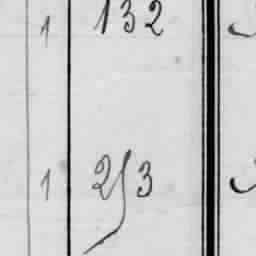 1 132
1 253